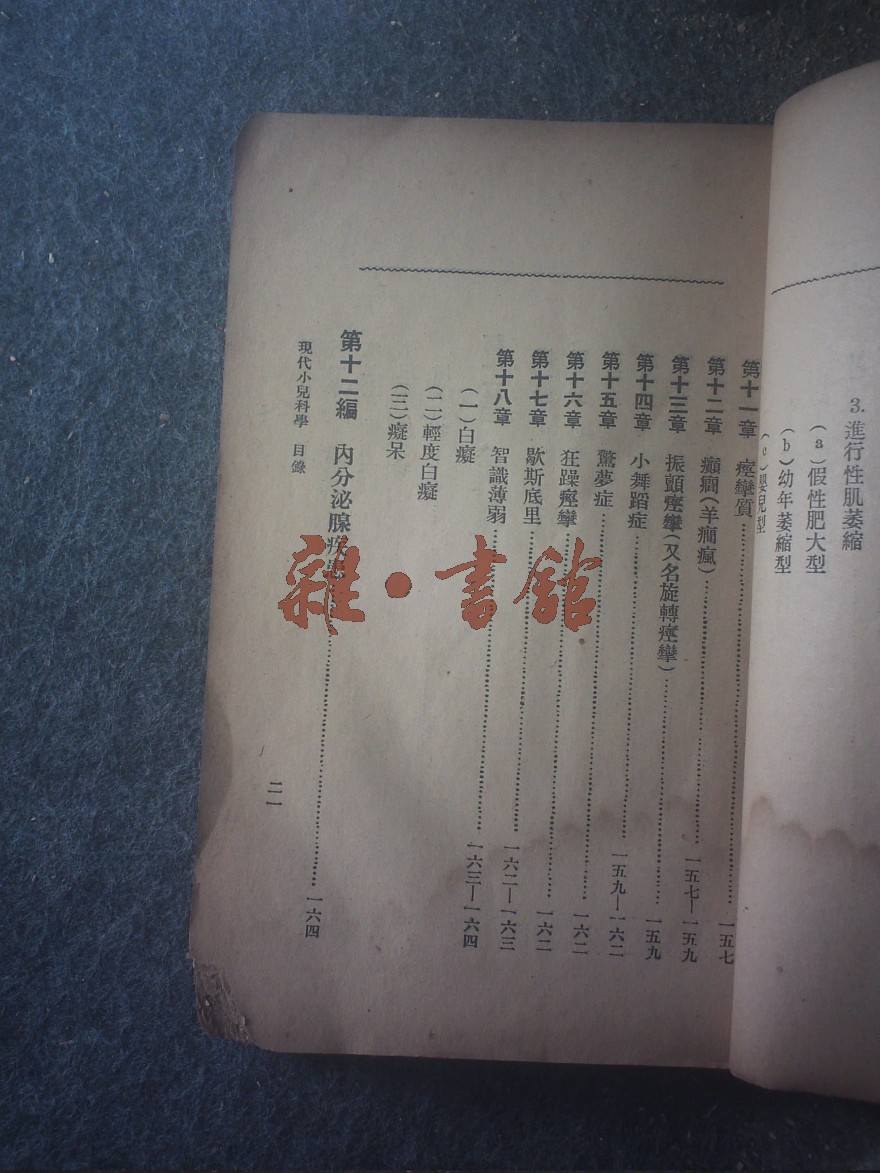 3. 進行性肌萎縮
(a)假性肥大型
(b)幼年萎縮型
(c)嬰兒型
第十一章 痙攣質……一五七
第十二章 癲癇(羊癇瘋)……一五七—一五九
第十三章 振顫痙攣(又名旋轉痙攣)……一五九
第十四章 小舞蹈症……一五九—一六二
第十五章 驚夢症……一六二
第十六章 狂躁痙攣……一六二
第十七章 歇斯底里……一六二—一六三
第十八章 智識薄弱……一六三—一六四
(一)白癡
(二)輕度白癡
(三)癡呆
第十二編 內分泌腺疾患……一六四
現代小兒科學 目錄
二一
雜·書館